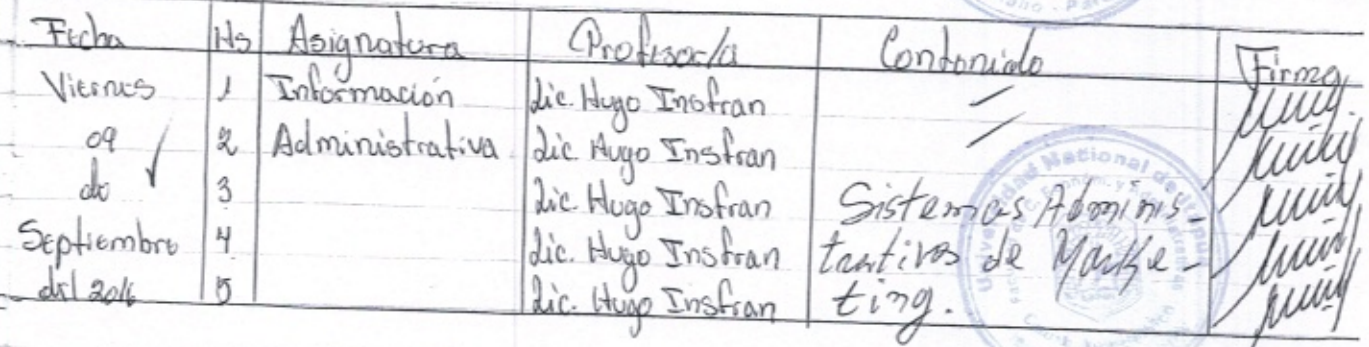 Fecha Hs Asignatura Profesor/a Contenido Firma
Viernes 1 Información Lic. Hugo Insfran
09 2 Administrativa Lic. Hugo Insfran
de 3 Lic. Hugo Insfran Sistemas Adminis-
Septiembre 4 Lic. Hugo Insfran trativos de Marke-
del 2016 5 Lic. Hugo Insfran ting.
Universidad Nacional de Itapúa